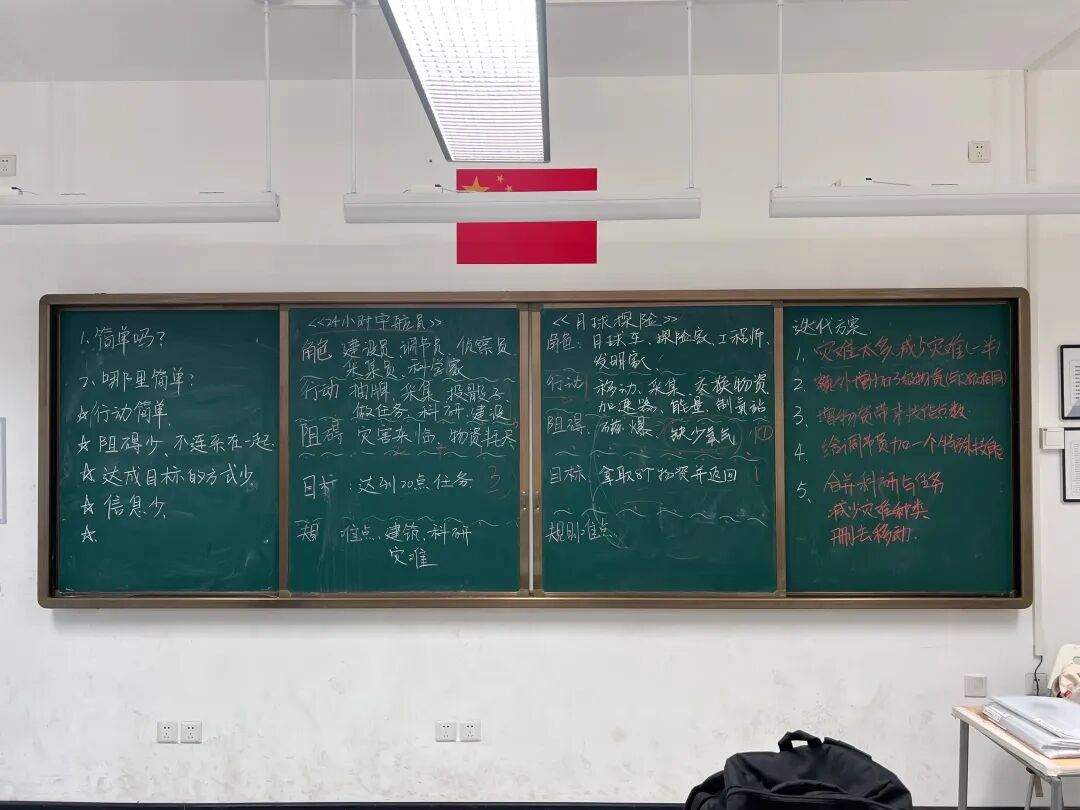 1. 简单吗?
2. 哪里简单?
☆行动简单.
☆阻碍少、不连系在一起.
☆达成目标的方式少.
☆信息少.
☆
《24小时宇航员》
角色 建设员 调节员 侦察员
采集员、科学家
行动 抽牌、采集 投骰子
做任务、科研、建设
阻碍 灾害来临、物资耗尽
目标:达到20点任务 3
规 难点、建筑、科研
灾难
《月球探险》
角色:月球车、探险家、工程师、
发明家.
行动 移动、采集、交换物资
加速器、能量、制氧站
阻碍. 爆、缺少氧气
目标. 拿取8个物资并返回 1
规则难点.
迭代方案
1. 灾难太多,减少灾难(一半)
2. 额外增加3级物资(与2级相同)
3. 增物资带来
4. 给调节员加一个特殊技能
5. 合并科研与任务
减少灾难种类
删去移动.